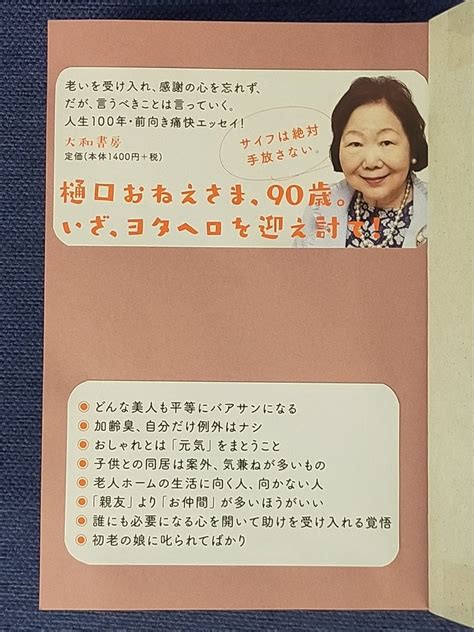 老いを受け入れ、感謝の心を忘れず、
だが、言うべきことは言っていく。
人生100年・前向き痛快エッセイ!
大和書房
定価(本体1400円+税)
サイフは絶対
手放さない。
樋口おねえさま、90歳。
いざ、ヨタヘロを迎え討て!
どんな美人も平等にバアサンになる
加齢臭、自分だけ例外はナシ
おしゃれとは「元気」をまとうこと
子供との同居は案外、気兼ねが多いもの
老人ホームの生活に向く人、向かない人
「親友」より「お仲間」が多いほうがいい
誰にも必要になる心を開いて助けを受け入れる覚悟
初老の娘に叱られてばかり